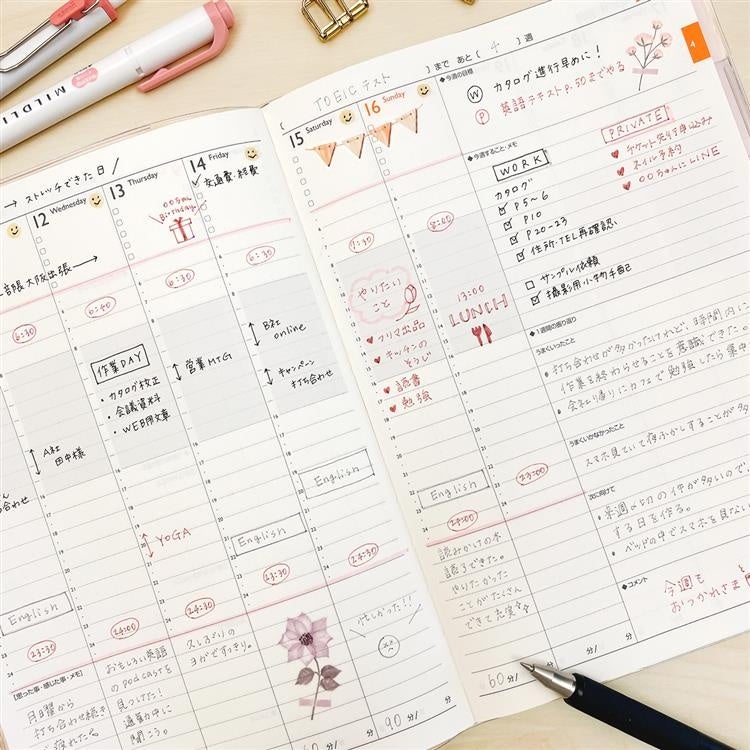 MILDLI
→ ストレッチできた日 /
12 Wednesday
13 Thursday
14 Friday
〇〇ちゃん
Birthday
交通費・経費
大阪出張 →
6:30
6:40
6:30
6:30
作業DAY
・カタログ校正
・会議資料
・WEB用文章
営業MTG
B社
online
キャンペーン
打ち合わせ
A社
田中様
YOGA
English
English
English
23:00
24:00
24:30
23:30
24:30
【思った事・感じた事・メモ】
月曜から
打ち合わせ続き
で疲れた
おもしろい英語
のpodcastを
見つけた!
通勤中に
聞こう。
久しぶりの
ヨガですっきり。
忙しかった!!
90 分/
分
TOEIC テスト
】まで あと【 4 】週
15 Saturday
16 Sunday
7:30
8:00
やりたい
こと
♥ フリマ出品
♥ キッチンの
そうじ
♥ 読書
♥ 勉強
13:00
LUNCH
English
24:00
23:00
読みかけの本
読了できた。
やりたかった
ことがたくさん
できて充実
60 分/
分/
4
◆今週の目標
W カタログ進行早めに!
P 英語テキストP.50までやる
◆今週すること・メモ
WORK
カタログ
P5~6
P10
P20-23
住所・TEL再確認
サンプル依頼
撮影用小物手配
PRIVATE
♥ チケット先行申込み
♥ ネイル予約
♥ 〇〇ちゃんにLINE
◆1週間の振り返り
うまくいったこと
・打ち合わせが多かったけれど、時間内に
作業を終わらせることを意識できた
・会社帰りにカフェで勉強したら集中
うまくいかなかったこと
スマホ見ていて夜ふかしすることが
次に向けて
・来週〆切の件が多いので
する日を作る。
・ベッドの中でスマホを見ない
◆コメント
今週も
おつかれさま